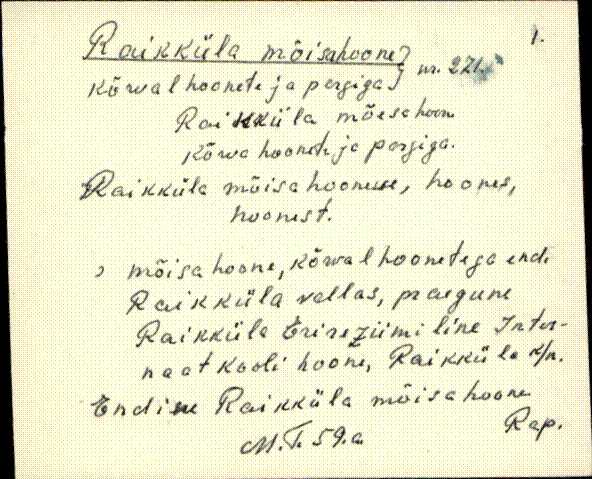 1.
Raikküla mõisahoone
kõrvalhoonete ja pargiga } nr. 271.
Raikküla mõesahoon
kõrvahoonete ja pargiga.
Raikküla mõisahoonesse, hoones,
hoonest.
mõisahoone, kõrvalhoonetega end.
Raikküla vallas, praegune
Raikküla Erirežiimiline Inter-
naatkooli hoone, Raikküla k/n.
Endine Raikküla mõisahoone
Rap.
M.T. 59.a.